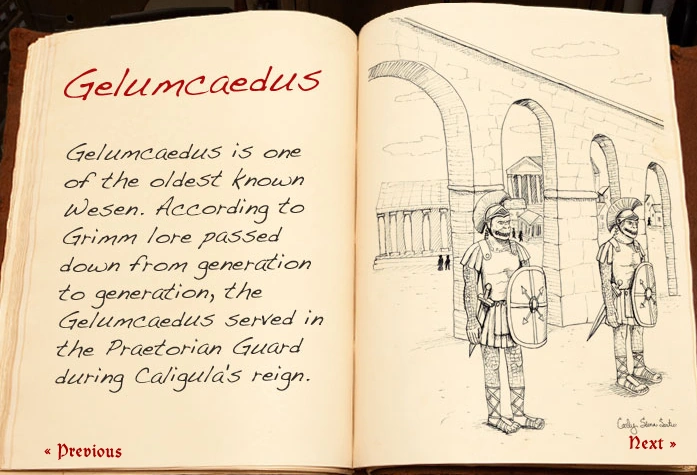 Gelumcaedus
Gelumcaedus is one
of the oldest known
Wesen. According to
Grimm lore passed
down from generation
to generation, the
Gelumcaedus served in
the Praetorian Guard
during Caligula's reign.
« Previous
Next »